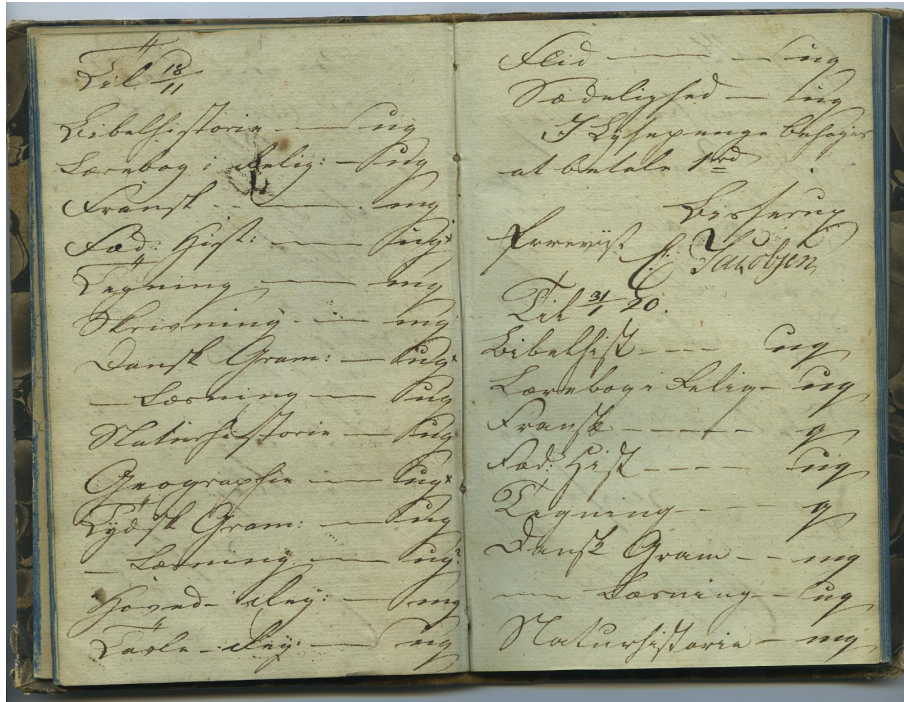 Til 18/11
Bibelhistorie — ug
Lærebog i Relig: — ug
Fransk — mg
Fæd: Hist: — ug x
Tegning — mg
Skrivning — mg
Dansk Gram: — ug x
— Læsning — ug
Naturhistorie — ug
Geographie — ug x
Tydsk Gram: — ug
— Læsning — ug
Hoved-Reg: — mg
Tavle-Reg: — ug
Flid — ug
Sædelighed — ug
I Lysepenge behages
at betale 1 rd
Bisserup
Foreviist
C: Jacobsen
Til 31/1 20.
Bibelhist — ug
Lærebog i Relig — ug
Fransk — g
Fæd: Hist — ug
Tegning — g
Dansk Gram — mg
— Læsning — ug
Naturhistorie — mg